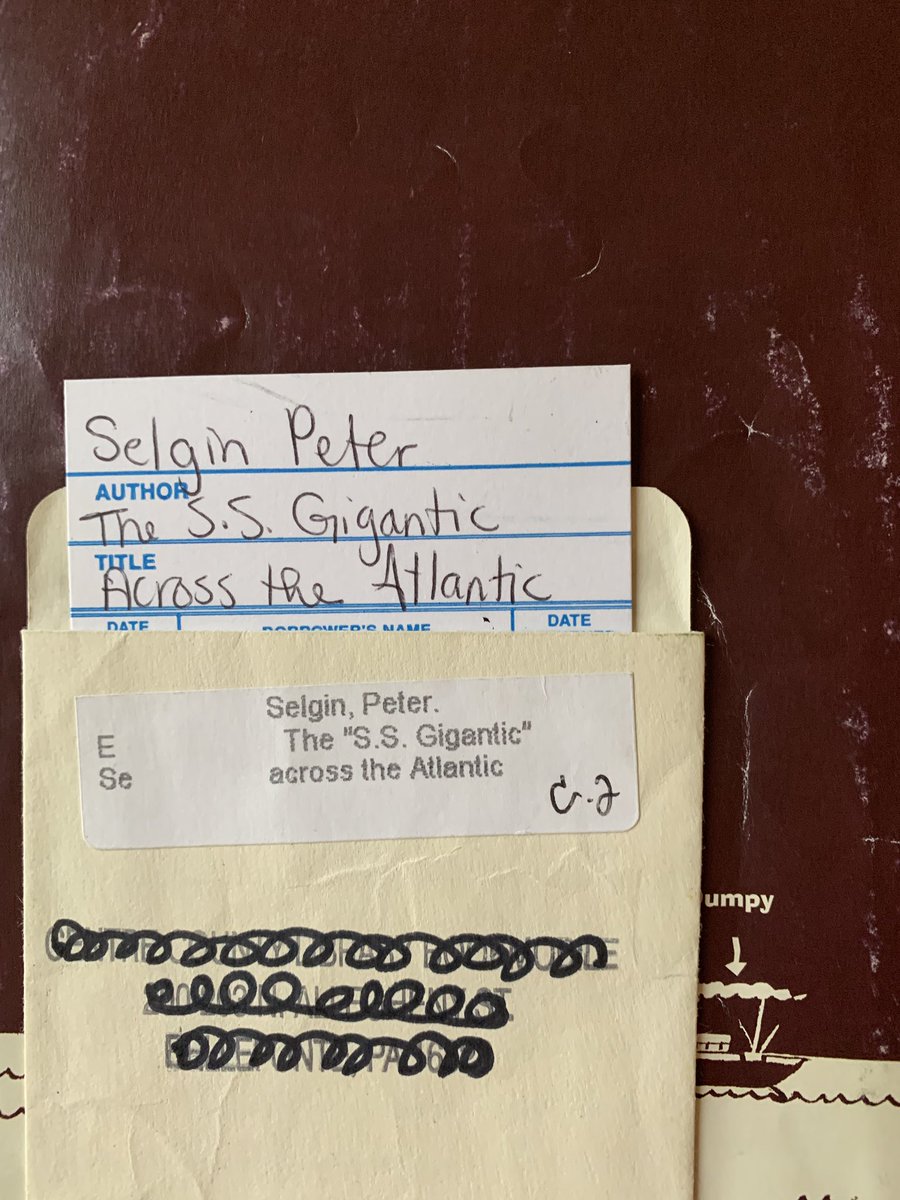 Selgin Peter
AUTHOR
The S.S. Gigantic
TITLE
Across the Atlantic
DATE BORROWER'S NAME DATE
Selgin, Peter.
E The "S.S. Gigantic"
Se across the Atlantic
C.2
umpy